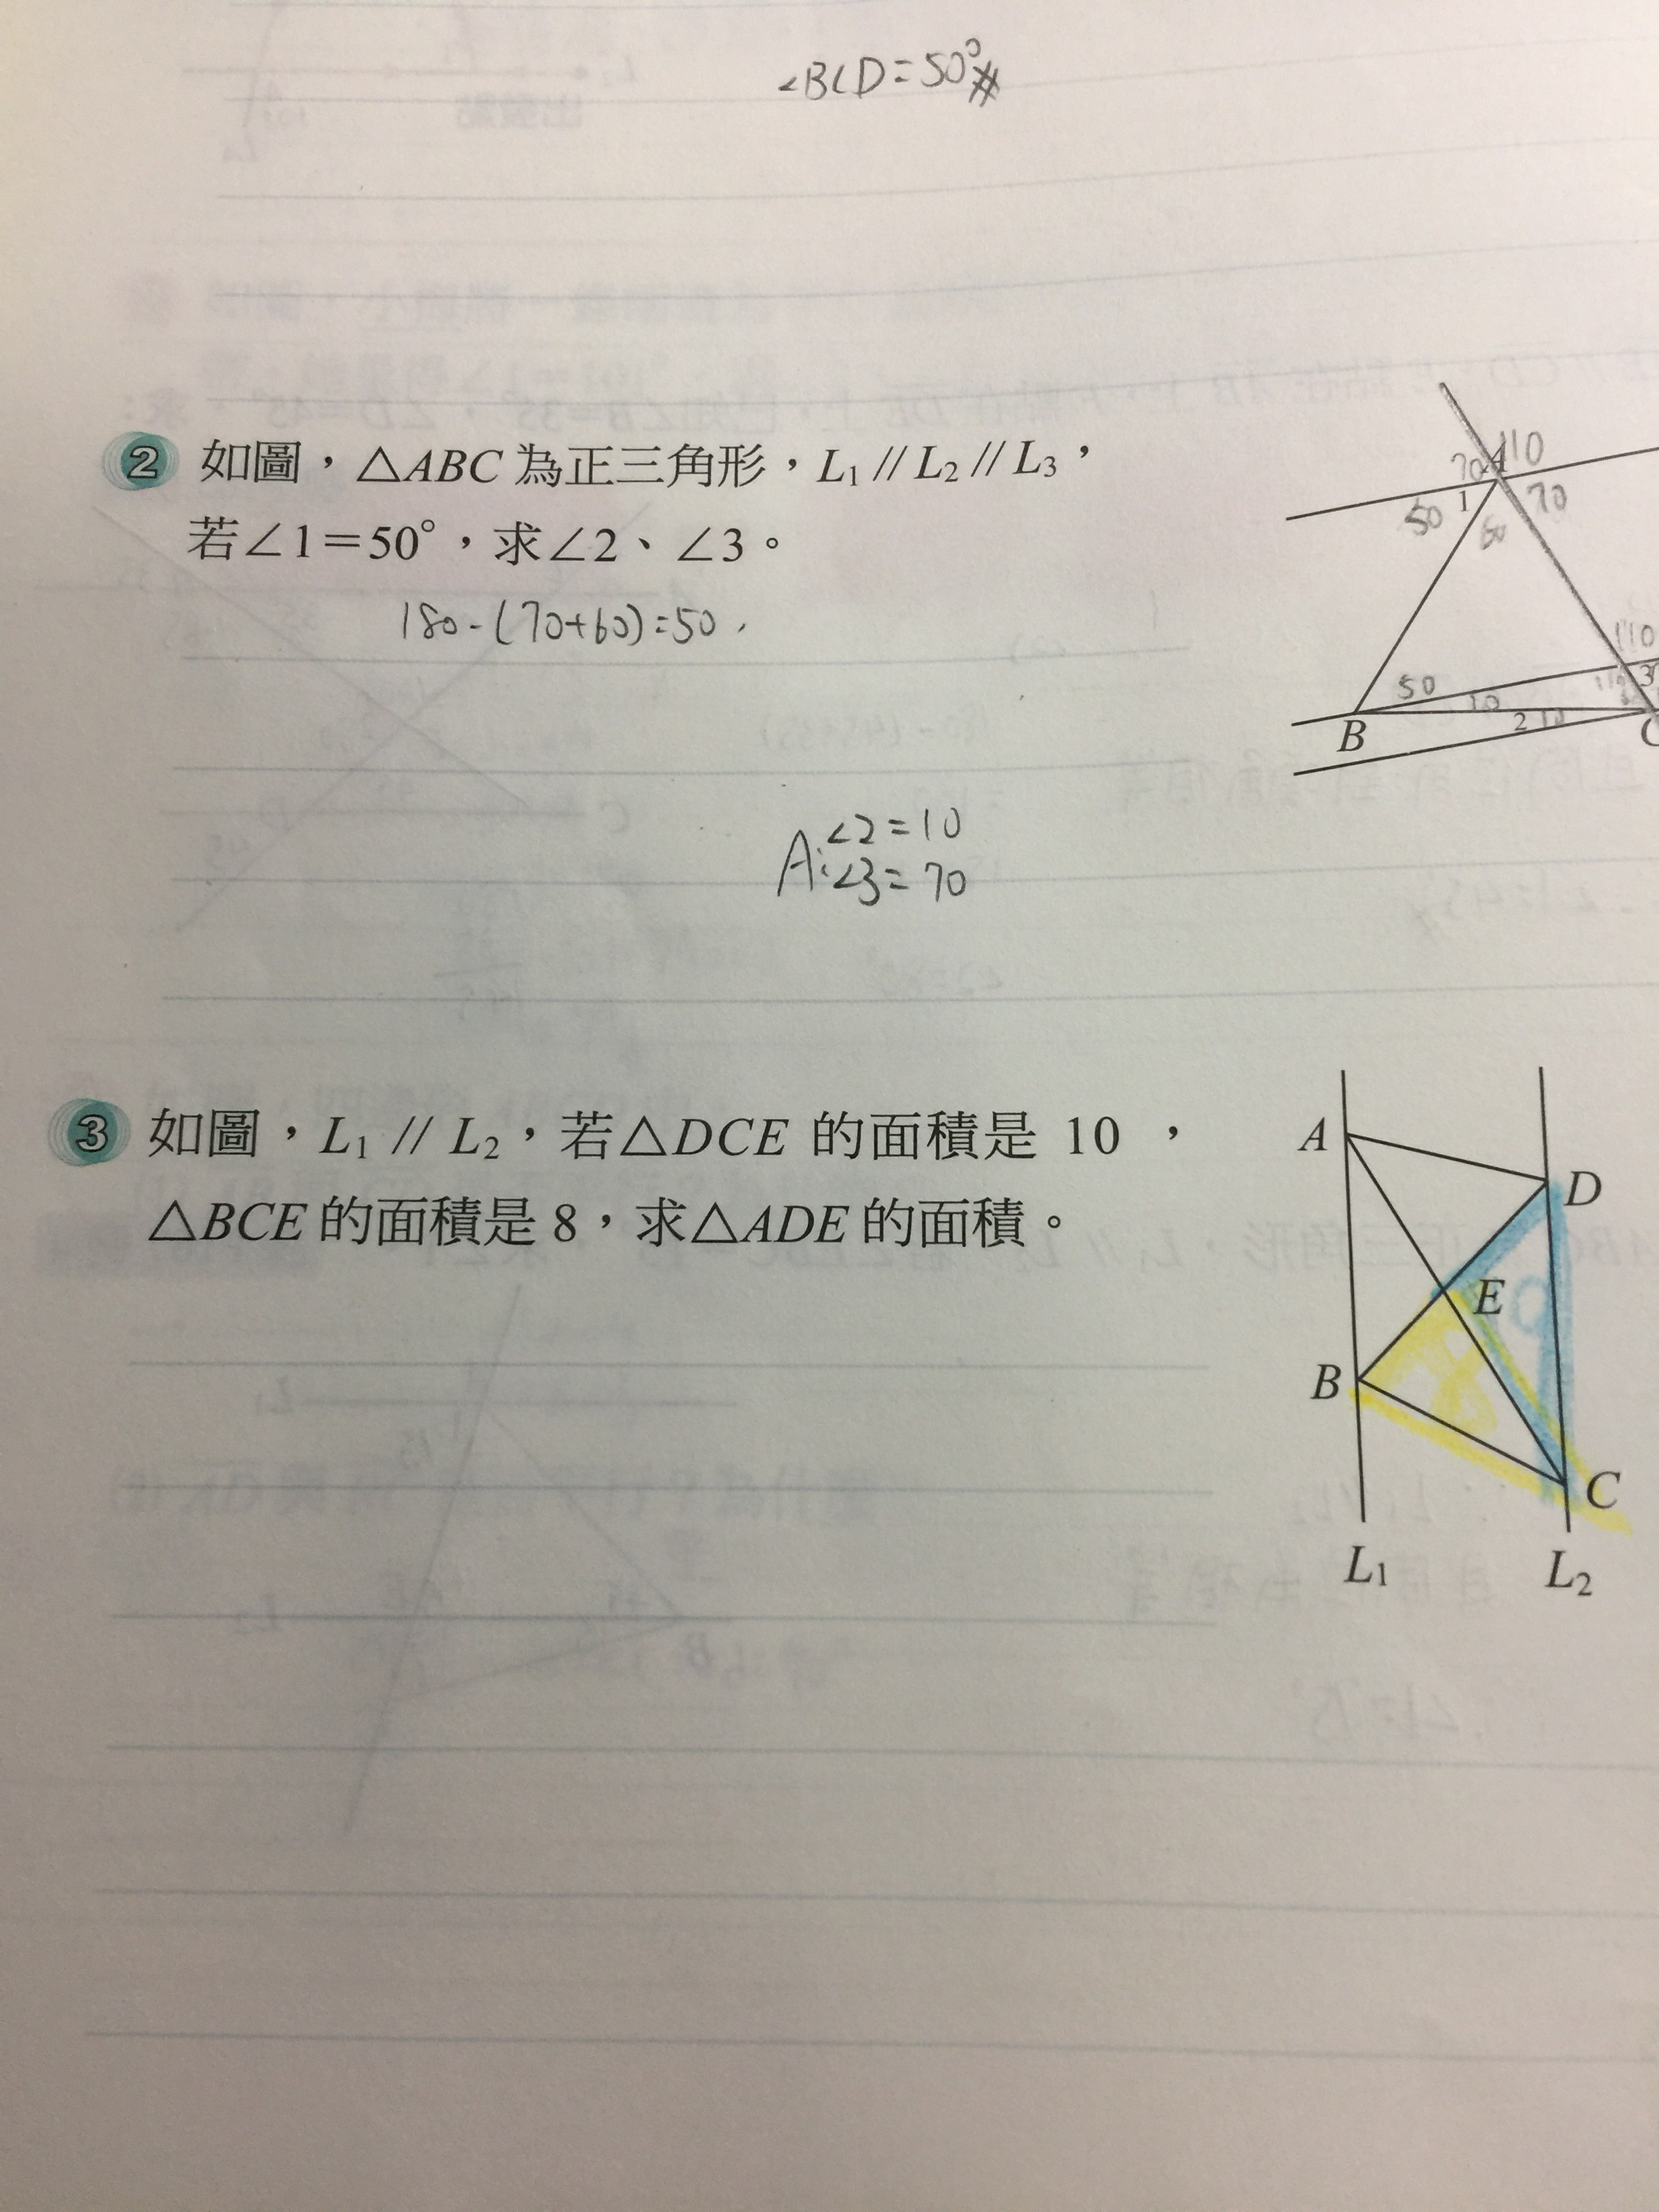 ∠BCD=50°#
2 如圖，△ABC 為正三角形，L₁ // L₂ // L₃，
若∠1＝50°，求∠2、∠3。
180-(70+60)=50
A:∠2=10
∠3=70
A
110
70
50
1
60
70
110
50
3
10
B
2
10
C
3 如圖，L₁ // L₂，若△DCE 的面積是 10 ，
△BCE 的面積是 8，求△ADE 的面積。
A
D
E
10
B
8
C
L₁
L₂